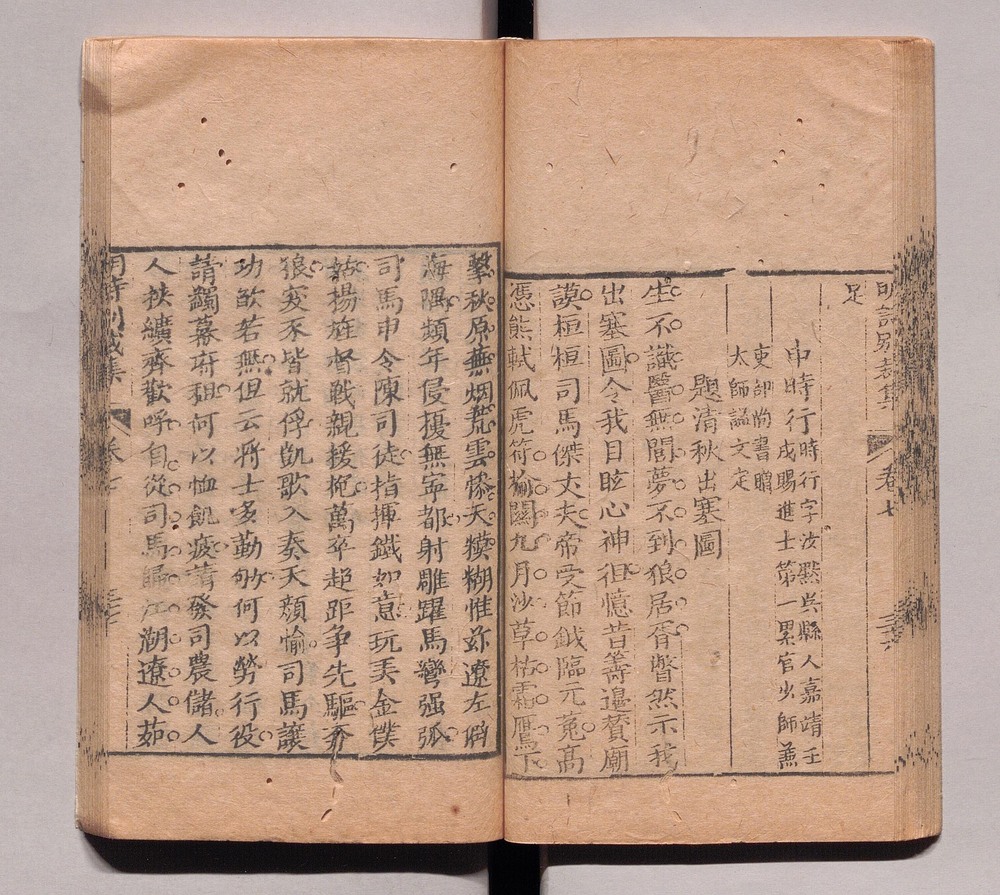 明詩別裁集 卷七
足
申時行 時行字汝默吳縣人嘉靖壬
戌賜進士第一累官少師兼
吏部尚書贈
太師諡文定
題清秋出塞圖
生不識醫無閭夢不到狼居胥瞥然示我
出塞圖令我目眩心神徂憶昔籌邊贊廟
謨桓桓司馬傑丈夫帝受節鉞臨元菟高
憑熊軾佩虎符榆關九月沙草枯霜鴈下
擊秋原蕪烟荒雲慘天糢糊惟茲遼左僻
海隅頻年侵擾無寧都射雕躍馬彎强弧
司馬申令陳司徒指揮鐵如意玩弄金僕
姑揚旌督戰親援枹萬卒超距爭先驅奔
狼突豕皆就俘凱歌入奏天顏愉司馬讓
功飲若無但云將士多勤劬何以勞行役
請蠲幕府租何以恤飢疲請發司農儲人
人挾纊齊歡呼自從司馬歸江湖遼人茹
明詩別裁集 卷七